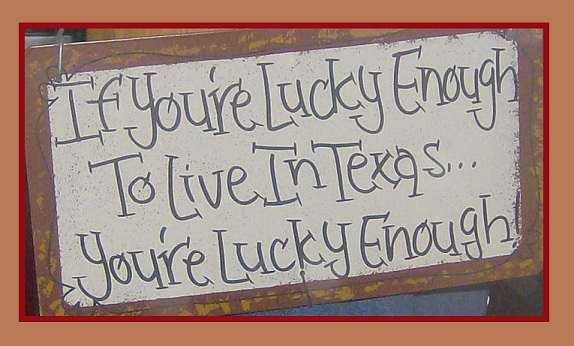 If You're Lucky Enough
To Live In Texas...
You're Lucky Enough!